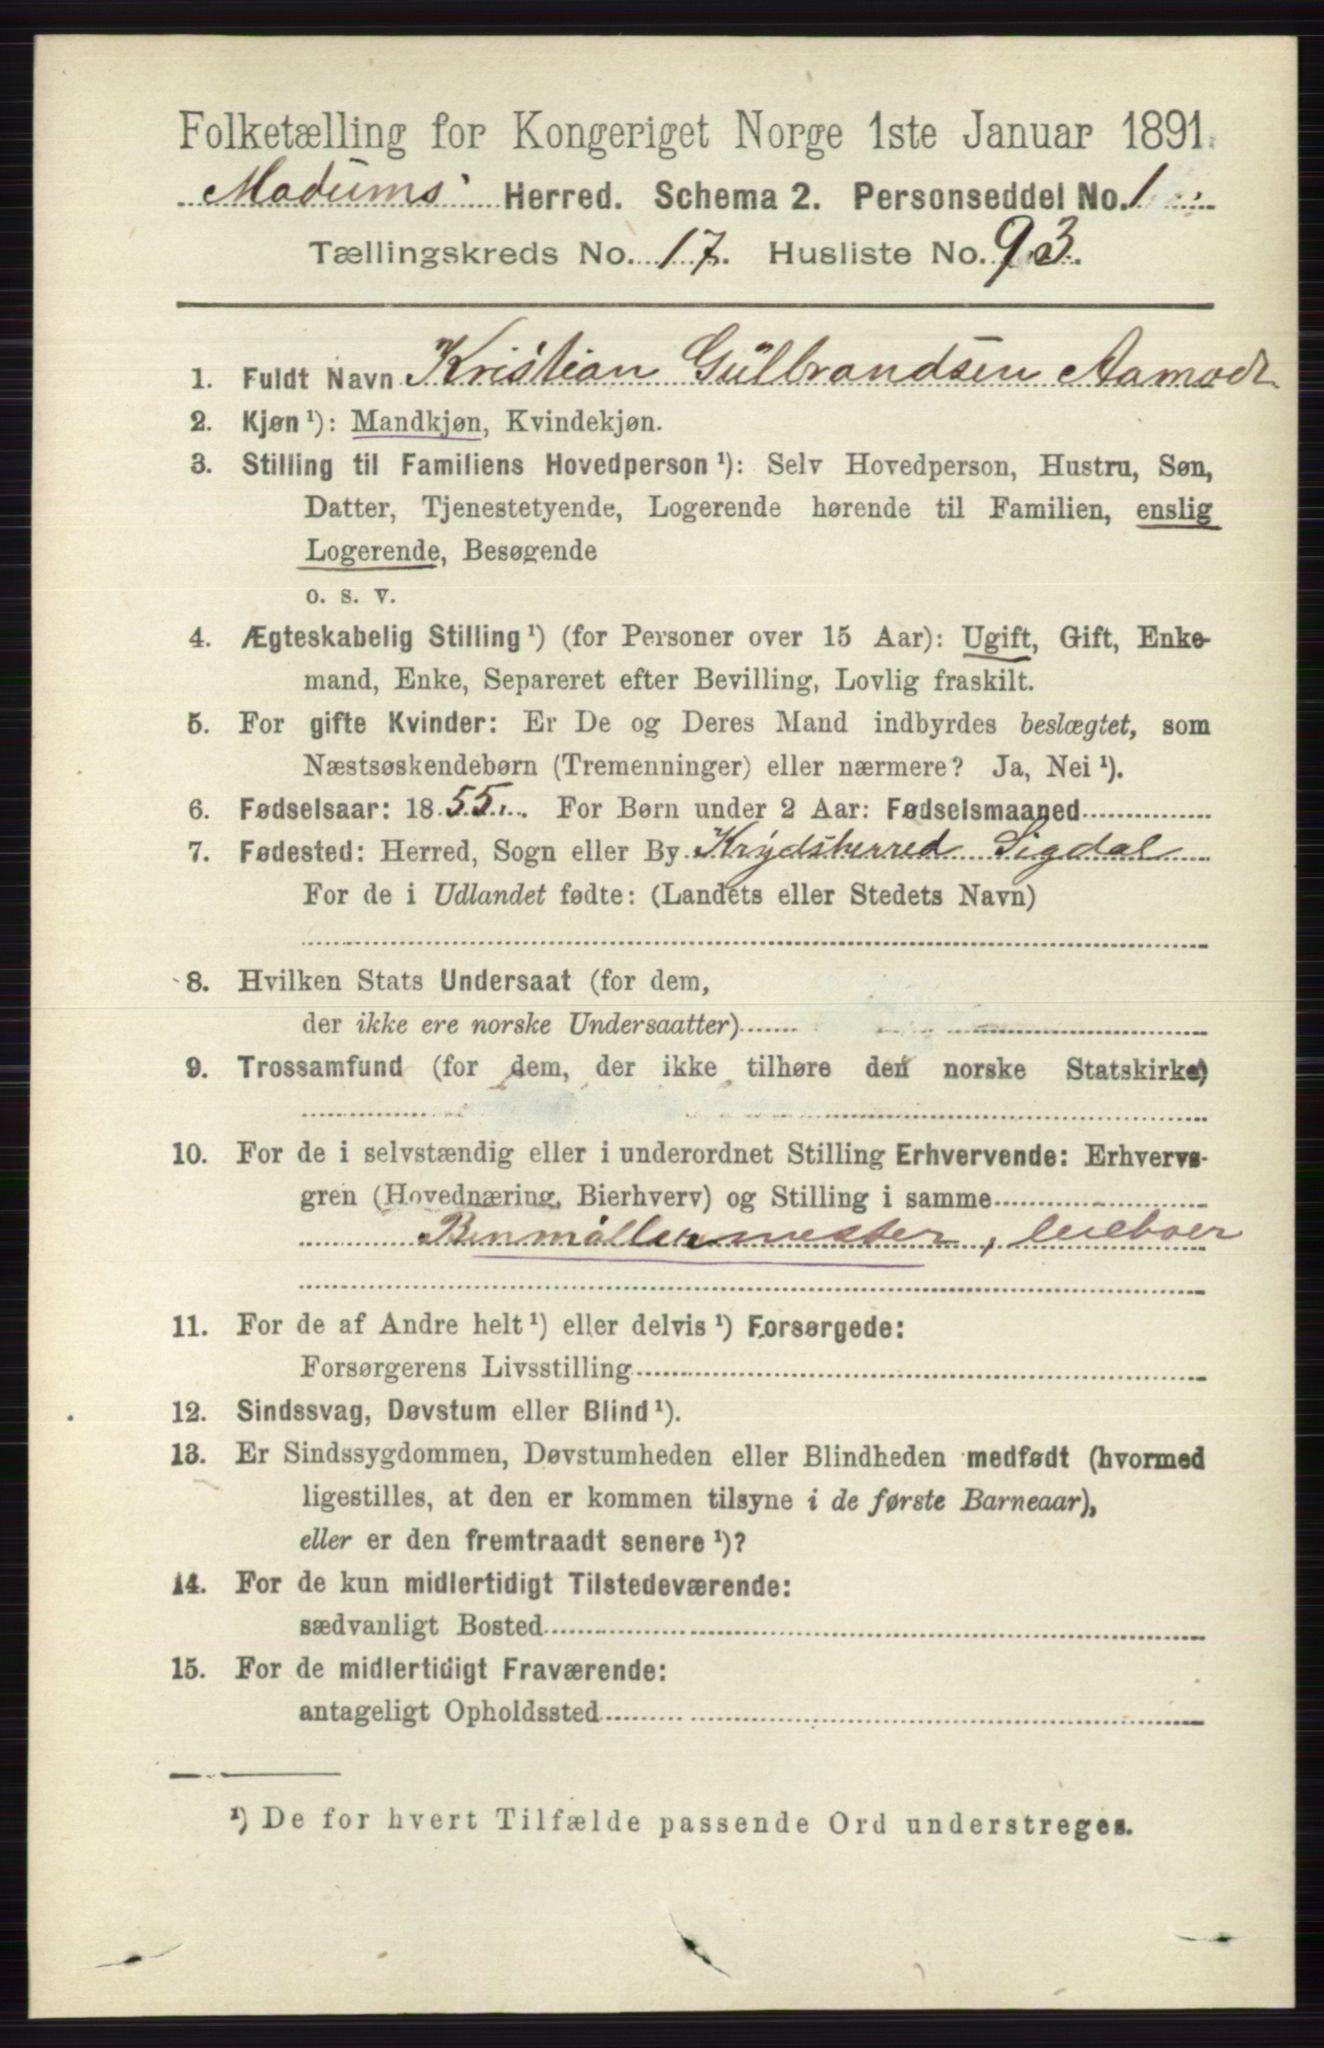 Folketælling for Kongeriget Norge 1ste Januar 1891.
Modums Herred. Schema 2. Personseddel No. 1
Tællingskreds No. 17. Husliste No. 93.
1. Fuldt Navn Kristian Gulbrandsen Aamodt
2. Kjøn ¹): Mandkjøn, Kvindekjøn.
3. Stilling til Familiens Hovedperson ¹): Selv Hovedperson, Hustru, Søn,
Datter, Tjenestetyende, Logerende hørende til Familien, enslig
Logerende, Besøgende
o. s. v.
4. Ægteskabelig Stilling ¹) (for Personer over 15 Aar): Ugift, Gift, Enke-
mand, Enke, Separeret efter Bevilling, Lovlig fraskilt.
5. For gifte Kvinder: Er De og Deres Mand indbyrdes beslægtet, som
Næstsøskendebørn (Tremenninger) eller nærmere? Ja, Nei ¹).
6. Fødselsaar: 1855. For Børn under 2 Aar: Fødselsmaaned
7. Fødested: Herred, Sogn eller By Krydsherred Sigdal
For de i Udlandet fødte: (Landets eller Stedets Navn)
8. Hvilken Stats Undersaat (for dem,
der ikke ere norske Undersaatter)
9. Trossamfund (for dem, der ikke tilhøre den norske Statskirke)
10. For de i selvstændig eller i underordnet Stilling Erhvervende: Erhvervs-
gren (Hovednæring, Bierhverv) og Stilling i samme
Benmøllermester, leieboer
11. For de af Andre helt ¹) eller delvis ¹) Forsørgede:
Forsørgerens Livsstilling
12. Sindssvag, Døvstum eller Blind ¹).
13. Er Sindssygdommen, Døvstumheden eller Blindheden medfødt (hvormed
ligestilles, at den er kommen tilsyne i de første Barneaar),
eller er den fremtraadt senere ¹)?
14. For de kun midlertidigt Tilstedeværende:
sædvanligt Bosted
15. For de midlertidigt Fraværende:
antageligt Opholdssted
¹) De for hvert Tilfælde passende Ord understreges.